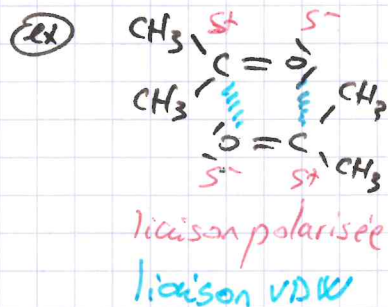 ex CH₃ δ+ δ-
C = O
CH₃ CH₃
O = C
δ- δ+ CH₃
liaison polarisée
liaison VDW